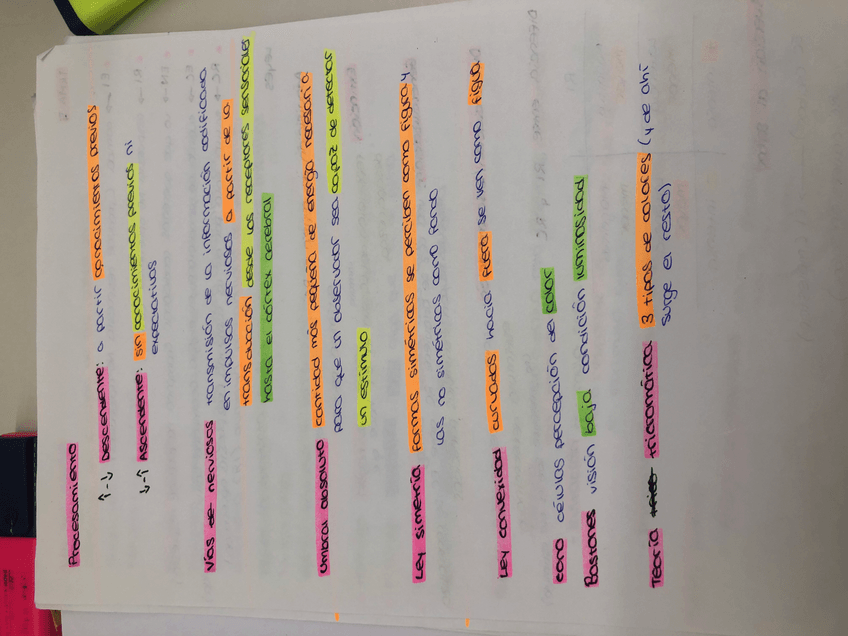 Procesamiento
↑-↓ Descendente: a partir conocimientos previos
↓-↑ Ascendente: sin conocimientos previos ni
expectativas
Vías de nerviosas transmisión de la información codificada
en impulsos nerviosos a partir de la
transducción desde los receptores sensoriales
hasta el córtex cerebral
Umbral absoluto cantidad más pequeña de energía necesaria
para que un observador sea capaz de detectar
un estímulo
Ley simetría formas simétricas se perciben como figura y
las no simétricas como fondo
Ley convexidad curvados hacia fuera se ven como figura
cono células percepción del color
Bastones visión baja condición luminosidad
Teoría tricromática: 3 tipos de colores (y de ahí
surge el resto)